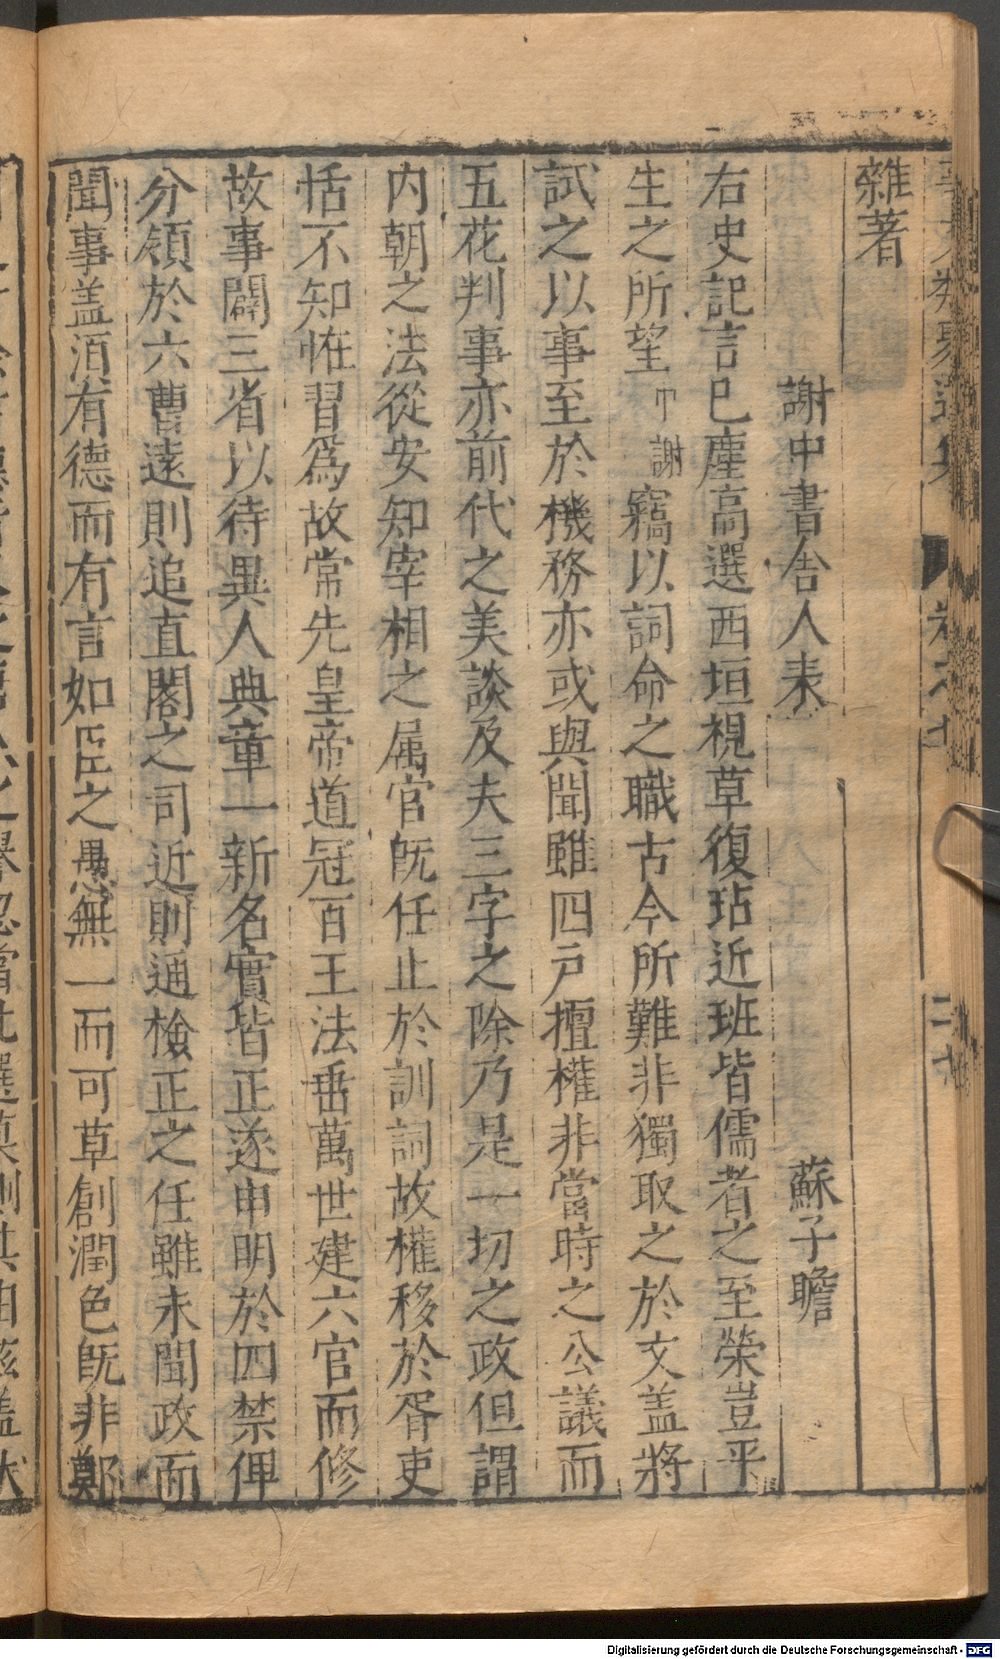 雜著
謝中書舍人表 蘇子瞻
右史記言已塵高選西垣視草復玷近班皆儒者之至榮豈平
生之所望中謝竊以詞命之職古今所難非獨取之於文盖將
試之以事至於機務亦或與聞雖四戶擅權非當時之公議而
五花判事亦前代之美談及夫三字之除乃是一切之政但謂
内朝之法從安知宰相之属官旣任止於訓詞故權移於胥吏
恬不知恠習爲故常先皇帝道冠百王法垂萬世建六官而修
故事闢三省以待異人典章一新名實皆正遂申明於四禁俾
分領於六曹遠則追直閣之司近則通檢正之任雖未聞政而
聞事盖須有德而有言如臣之愚無一而可草創潤色旣非鄭
Digitalisierung gefördert durch die Deutsche Forschungsgemeinschaft - DFG